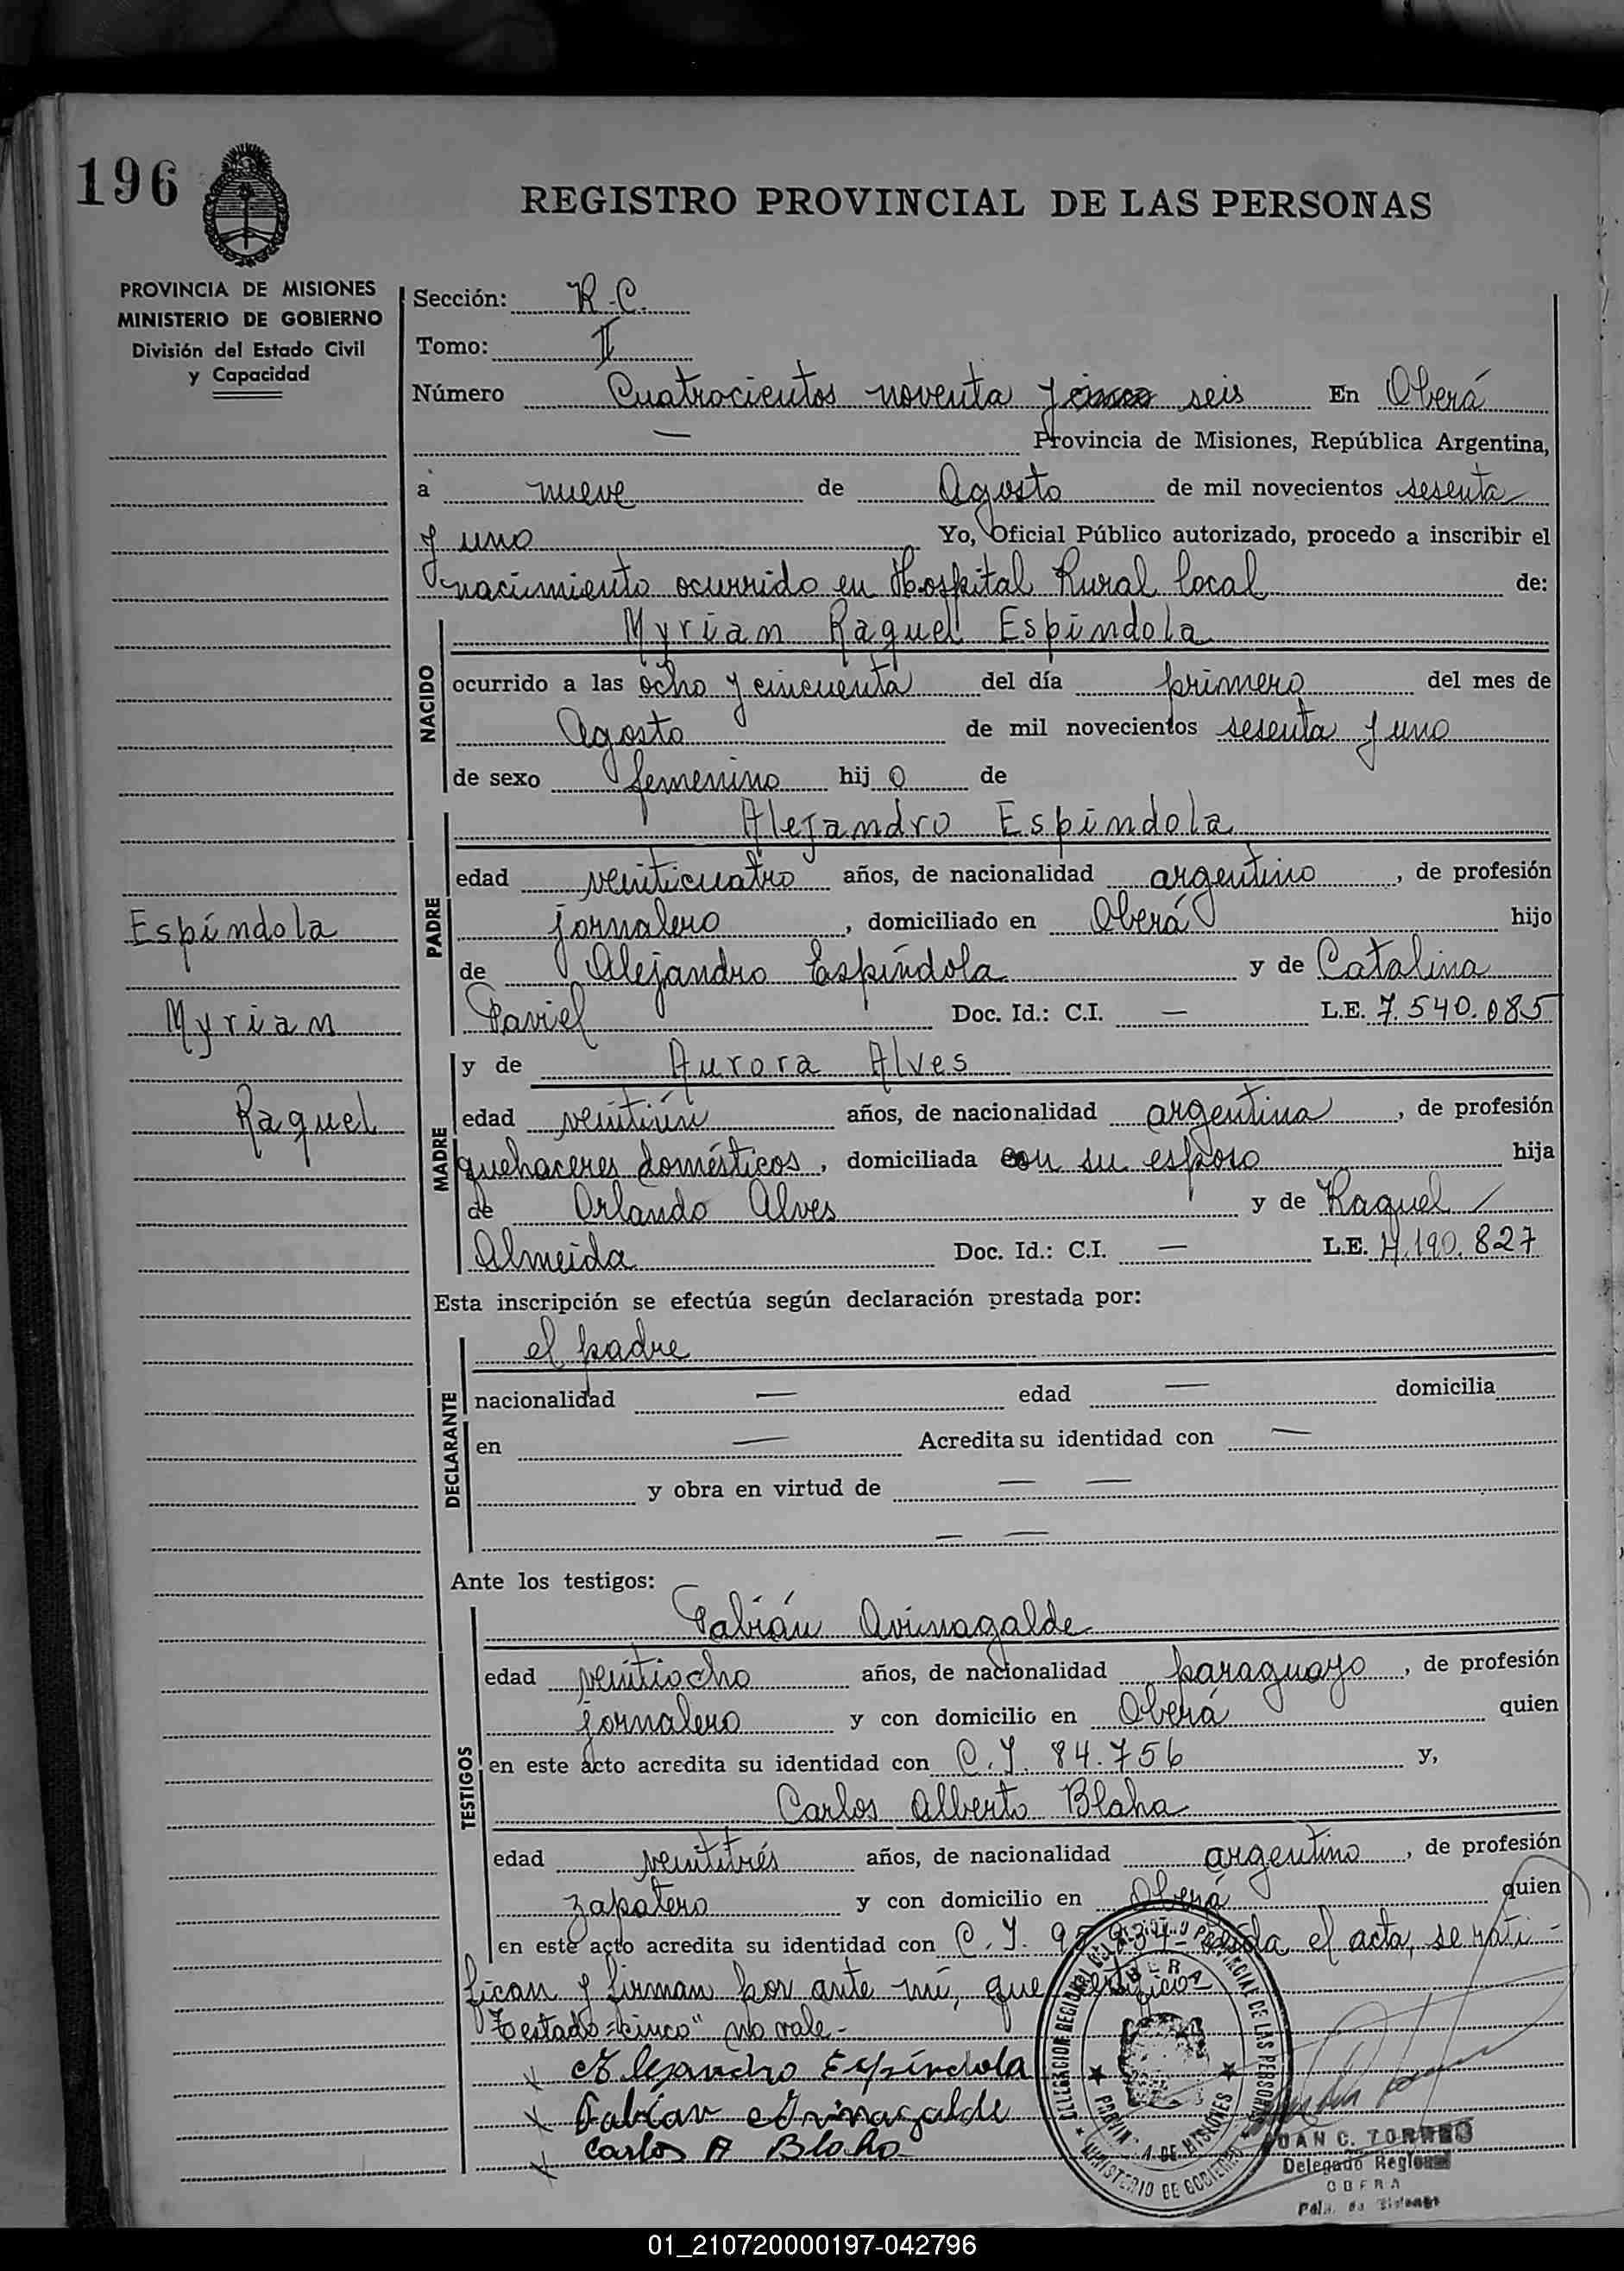 196
REGISTRO PROVINCIAL DE LAS PERSONAS
PROVINCIA DE MISIONES
MINISTERIO DE GOBIERNO
División del Estado Civil
y Capacidad
Sección: R.C.
Tomo: II
Número Cuatrocientos noventa y cinco seis En Oberá
— Provincia de Misiones, República Argentina,
a nueve de Agosto de mil novecientos sesenta
y uno Yo, Oficial Público autorizado, procedo a inscribir el
nacimiento ocurrido en Hospital Rural local de:
NACIDO
Myrian Raquel Espíndola
ocurrido a las ocho y cincuenta del día primero del mes de
Agosto de mil novecientos sesenta y uno
de sexo femenino hij o de
PADRE
Alejandro Espíndola
edad veinticuatro años, de nacionalidad argentino, de profesión
jornalero, domiciliado en Oberá hijo
de Alejandro Espíndola y de Catalina
Doc. Id.: C.I. — L.E. 7.540.085
Espíndola
Myrian
Raquel
MADRE
y de Aurora Alves
edad veintiún años, de nacionalidad argentina, de profesión
quehaceres domésticos, domiciliada con su esposo hija
de Orlando Alves y de Raquel
Almeida Doc. Id.: C.I. — L.E. 4.190.827
Esta inscripción se efectúa según declaración prestada por:
DECLARANTE
el padre
nacionalidad — edad — domicilia
en — Acredita su identidad con —
y obra en virtud de — —
— —
Ante los testigos:
TESTIGOS
Fabián Avinagalde
edad veintiocho años, de nacionalidad paraguayo, de profesión
jornalero y con domicilio en Oberá quien
en este acto acredita su identidad con C.I. 84.756 y,
Carlos Alberto Blaha
edad veintitrés años, de nacionalidad argentino, de profesión
zapatero y con domicilio en Oberá quien
en este acto acredita su identidad con C.I. Leída el acta, se rati-
fican y firman por ante mí, que certifico
Testado="cinco" no vale.-
x Alejandro Espíndola
x Fabián
x Carlos A Blaha
DELEGACION REGIONAL DEL REGISTRO PROVINCIAL DE LAS PERSONAS
OBERA
PROVINCIA DE MISIONES
MINISTERIO DE GOBIERNO
JUAN C. TORRES
Delegado Regional
OBERA
01_210720000197-042796